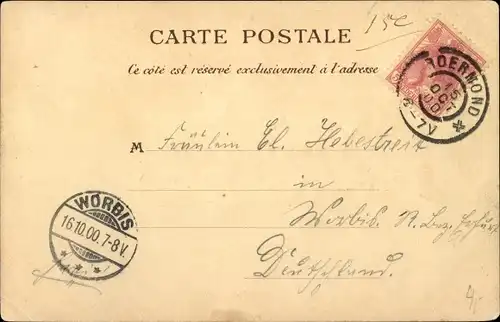 15c
CARTE POSTALE
Ce côté est réservé exclusivement à l'adresse
ROERMOND
15 OCT 00
M Fräulein El. Hebestreit
in
Worbis. R. Bez. Erfurt
Deutschland.
WORBIS
16.10.00.7-8V.